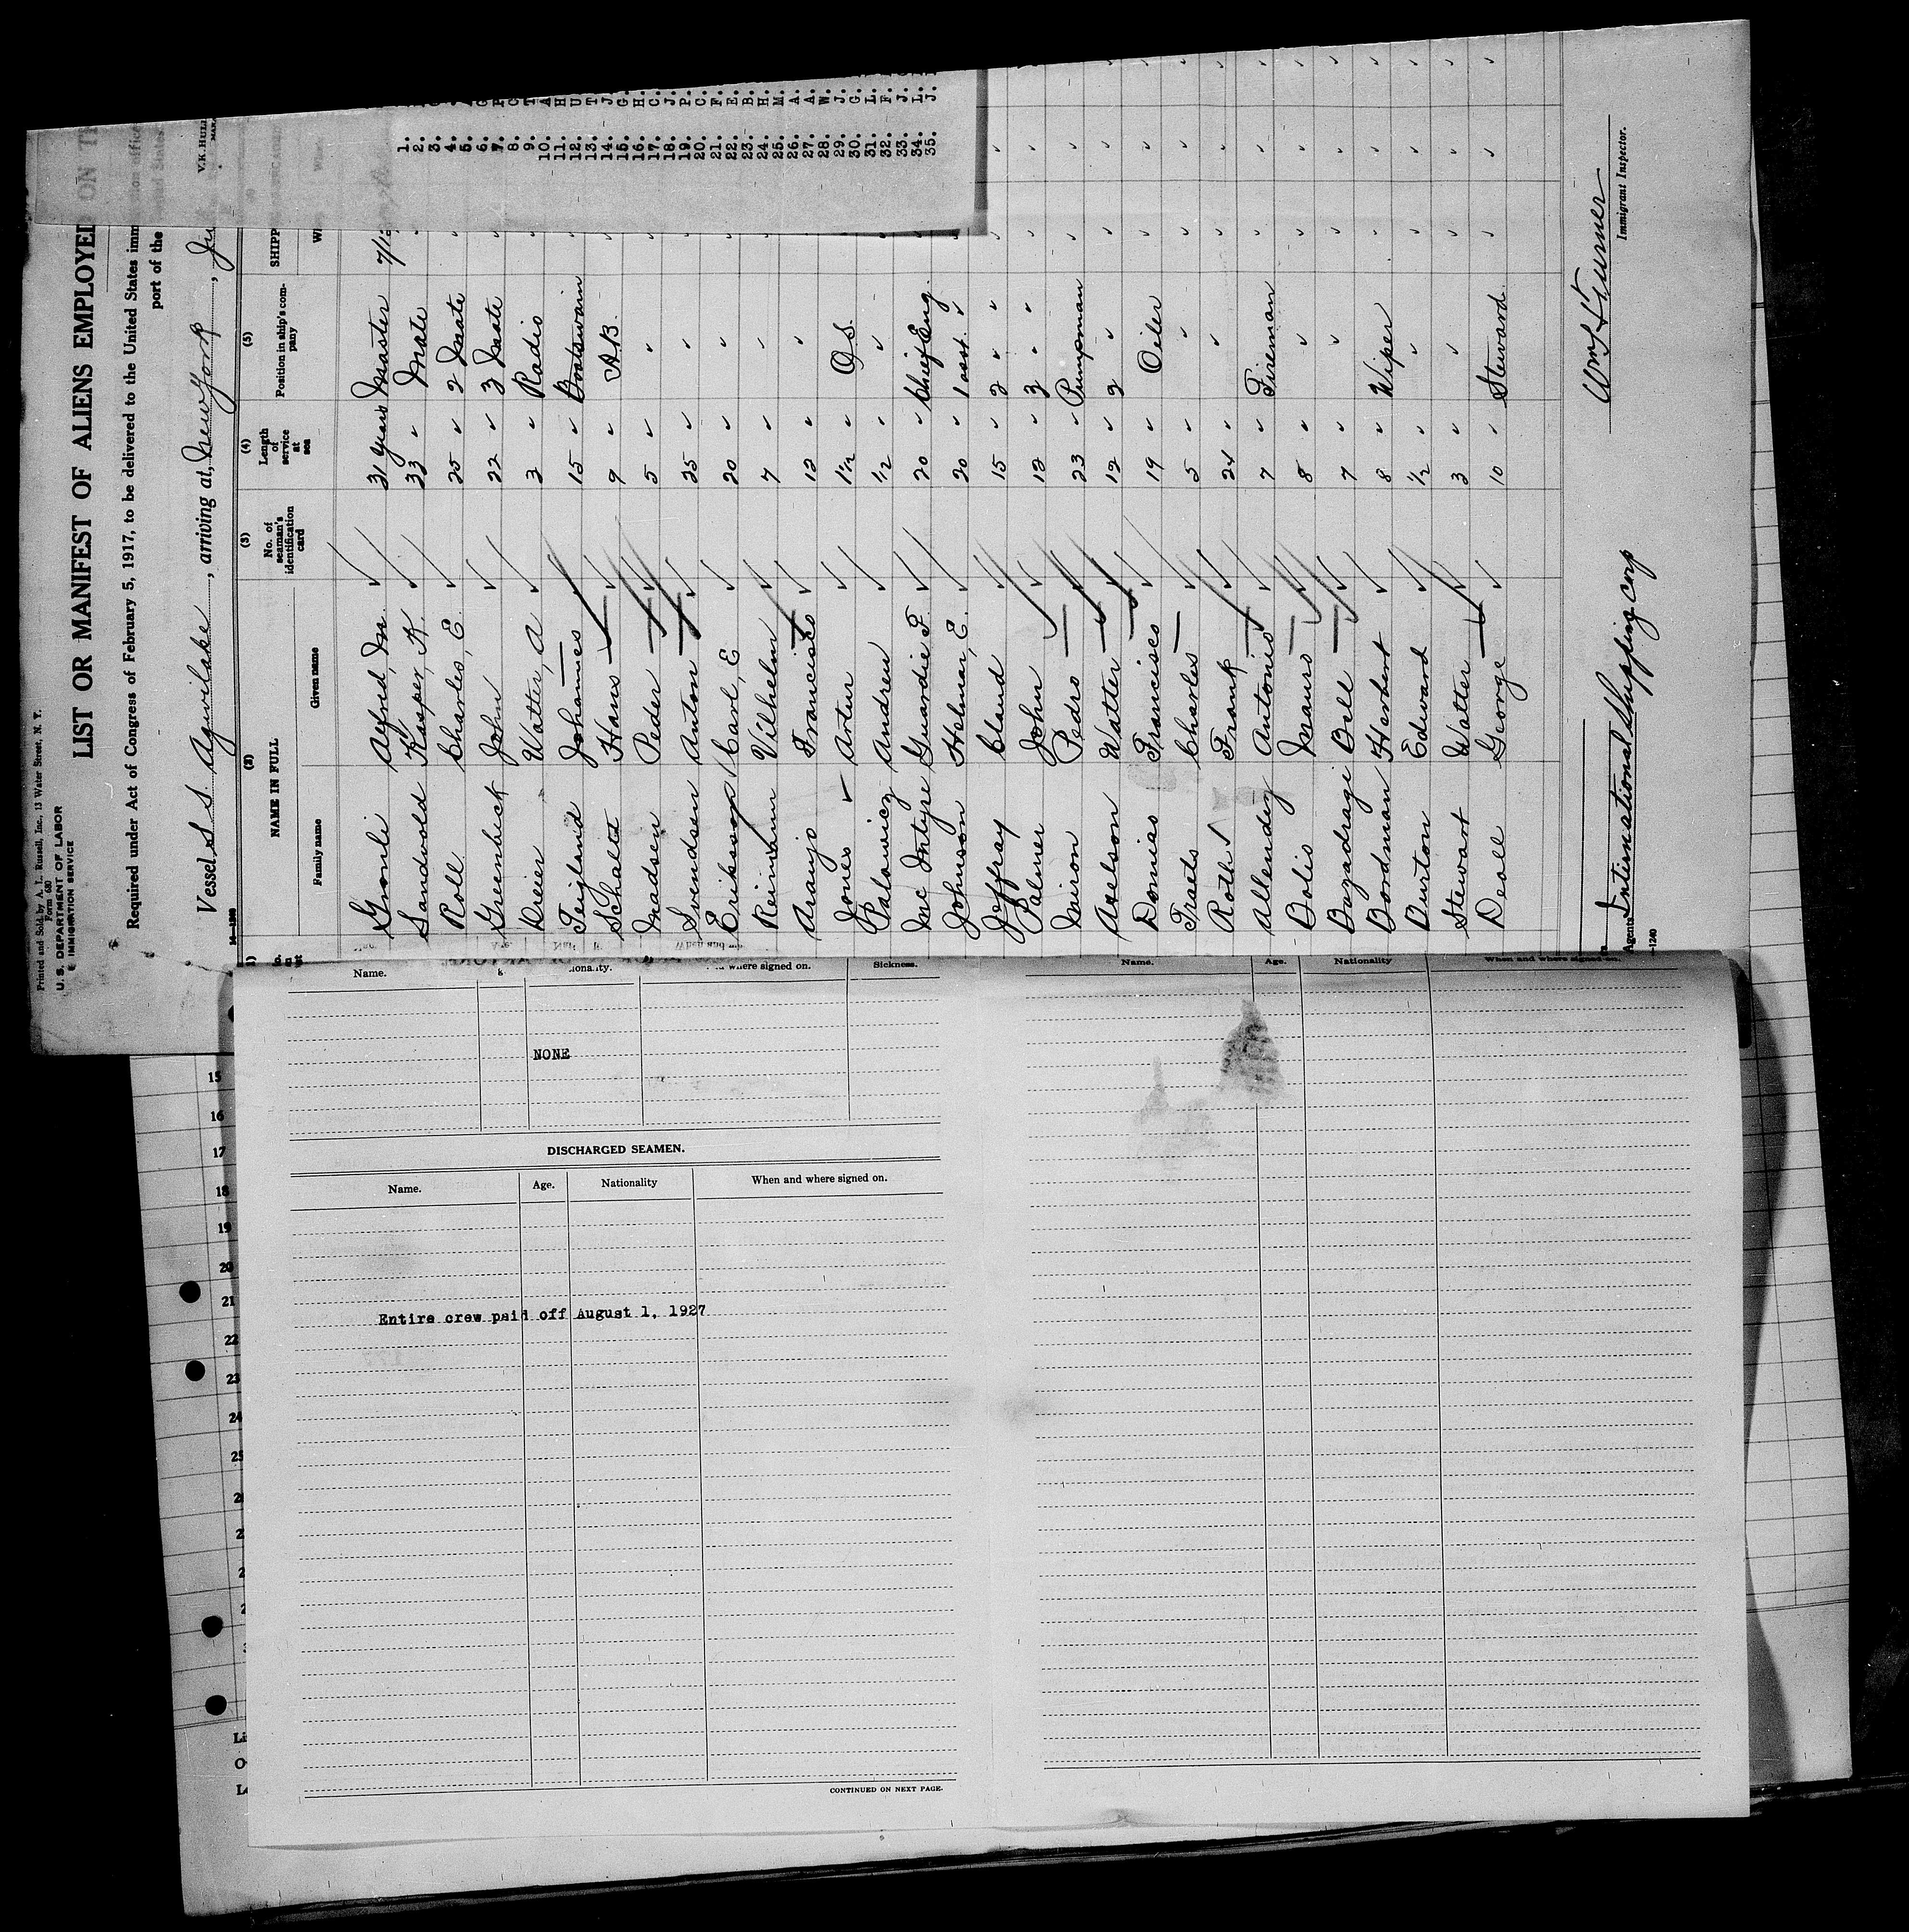 Printed and Sold by A. L. Russell, Inc., 13 Water Street, N. Y.
Form 680
U. S. DEPARTMENT OF LABOR
IMMIGRATION SERVICE
LIST OR MANIFEST OF ALIENS EMPLOYED ON
Required under Act of Congress of February 5, 1917, to be delivered to the United States
port of the
Vessel S.S. Agwilake, arriving at New York
(2) (3) (4) (5)
NAME IN FULL No. of seaman's identification card Length of service at sea Position in ship's company SHIPP
Family name Given name
Gronli Alfred, M. 31 years Master 7/1
Sandvold Kasper, K. 33 " Mate
Roll Charles, E. 25 " 2 Mate
Greenbeck John 22 " 3 Mate
Dreier Walter, A 3 " Radio
Teigland Johannes 15 " Boatswain
Schaltz Hans 9 " A.B.
Madsen Peder 5 " "
Svendsen Anton 35 " "
Eriksen Carl, E 20 " "
Reimann Vilhelm 7 " "
Araujo Francisco 12 " "
Jones Artur 1 1/2 " O.S.
Palowicz Andrew 1/2 " "
Mc Intyre Guardie F. 20 " Chief Eng.
Johnson Helmar, E. 20 " 1 asst. "
Jeffray Claud 15 " 2 " "
Palmer John 12 " 3 " "
Mairon Pedro 23 " Pumpman
Axelson Walter 12 " 2 "
Domias Francisco 19 " Oiler
Traets Charles 5 " "
Roth Frank 24 " "
Allendez Antonio 7 " Fireman
Bolio Mauro 8 " "
Bazadragi Bell 7 " "
Bordman Herbert 8 " Wiper
Burton Edward 1/2 " "
Stewart Walter 3 " "
Deall George 10 " Steward
Agents International Shipping Corp
Wm H Turner
Immigrant Inspector.
—1240
V.K. HULL
1.
2.
3.
4.
5.
6.
7.
8.
9.
10. A.
11. H.
12. U.
13. T.
14. J.
15. G.
16. H.
17. C.
18. J.
19. P.
20. C.
21. F.
22. E.
23. B.
24. H.
25. M.
26. A.
27. A.
28. W.
29. J.
30. G.
31. L.
32. F.
33. J.
34. L.
35. J.
Name. where signed on. Sickness.
NONE
DISCHARGED SEAMEN.
Name. Age. Nationality When and where signed on.
Entire crew paid off August 1, 1927
CONTINUED ON NEXT PAGE.
Name. Age. Nationality When and where signed on.
15
16
17
18
19
20
21
22
23
24
25